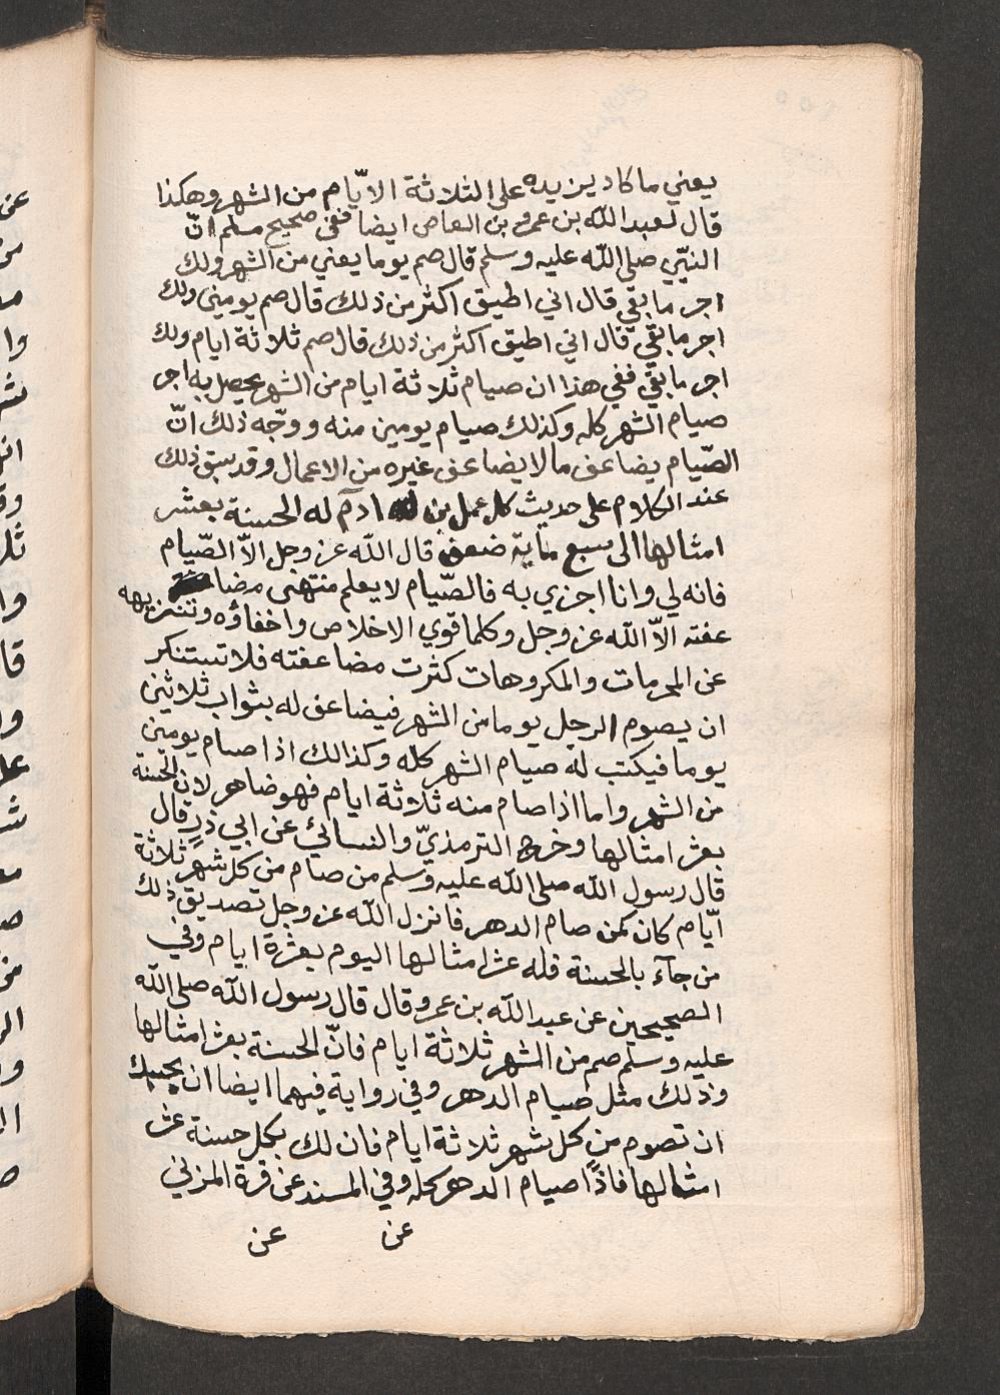 يعني ما كاد يزيده على الثلاثة الايّام من الشهر وهكذا
قال لعبد الله بن عمرو بن العاص ايضا ففي صحيح مسلم انّ
النبّي صلى الله عليه وسلم قال صم يوما يعني من الشهر ولك
اجر ما بقي قال اني اطيق اكثر من ذلك قال صم يومين ولك
اجر ما بقي قال اني اطيق اكثر من ذلك قال صم ثلاثة ايام ولك
اجر ما بقي ففي هذا ان صيام ثلاثة ايام من الشهر يحصل به اجر
صيام الشهر كله وكذلك صيام يومين منه ووجّه ذلك انّ
الصّيام يضاعف ما لا يضاعف غيره من الاعمال وقد سبق ذلك
عند الكلام على حديث كل عمل بن ادآم له الحسنة بعشر
امثالها الى سبع ماية ضعف قال الله عز وجل الاّ الصّيام
فانه لي وانا اجزي به فالصّيام لا يعلم منتهى مضا
عفته الاّ الله عز وجل وكلما قوي الاخلاص واخفاؤه وتنزيهه
عن المحرمات والمكروهات كثرت مضاعفته فلا تستنكر
ان يصوم الرجل يوما من الشهر فيضاعف له بثواب ثلاثين
يوما فيكتب له صيام الشهر كله وكذالك اذا صام يومين
من الشهر واما اذا صام منه ثلاثة ايام فهو ضاهر لان الحسنة
بعشر امثالها وخرج الترمذيّ والنسائي عن ابي ذرٍ قال
قال رسول الله صلى الله عليه وسلم من صام من كل شهر ثلاثة
ايّام كان كمن صام الدهر فانزل الله عز وجل تصديق ذلك
من جآء بالحسنة فله عشر امثالها اليوم بعشرة ايام وفي
الصحيحين عن عبد الله بن عمرو قال قال رسول الله صلى الله
عليه وسلم صم من الشهر ثلاثة ايام فانّ الحسنة بعشر امثالها
وذلك مثل صيام الدهر وفي رواية فيهما ايضا ان بحسبك
ان تصوم من كل شهر ثلاثة ايام فان لك بكل حسنة عشر
امثالها فاذًا صيام الدهر كله وفي المسند عن قرة المزني
عن عن